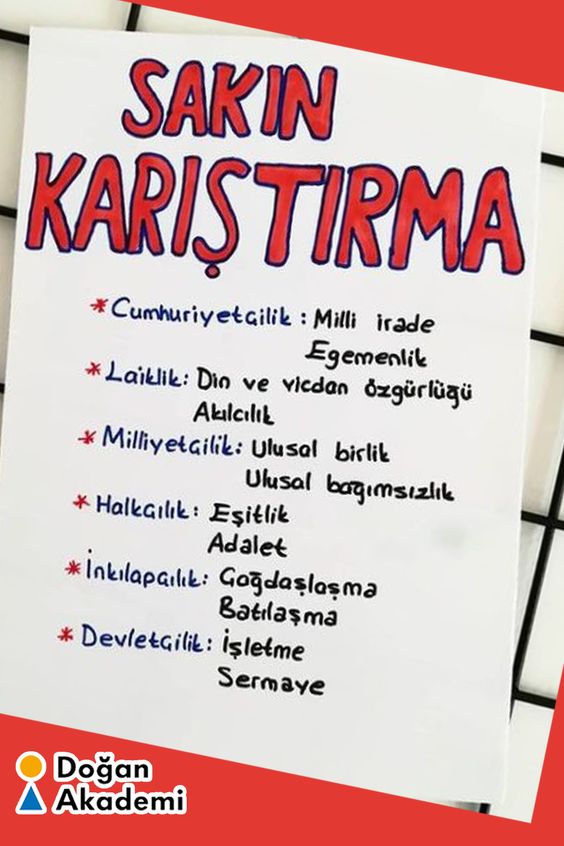 SAKIN
KARIŞTIRMA
*Cumhuriyetçilik: Milli irade
Egemenlik
*Laiklik: Din ve vicdan özgürlüğü
Akılcılık
*Milliyetçilik: Ulusal birlik
Ulusal bağımsızlık
*Halkçılık: Eşitlik
Adalet
*İnkılapçılık: Çağdaşlaşma
Batılaşma
*Devletçilik: İşletme
Sermaye
Doğan
Akademi